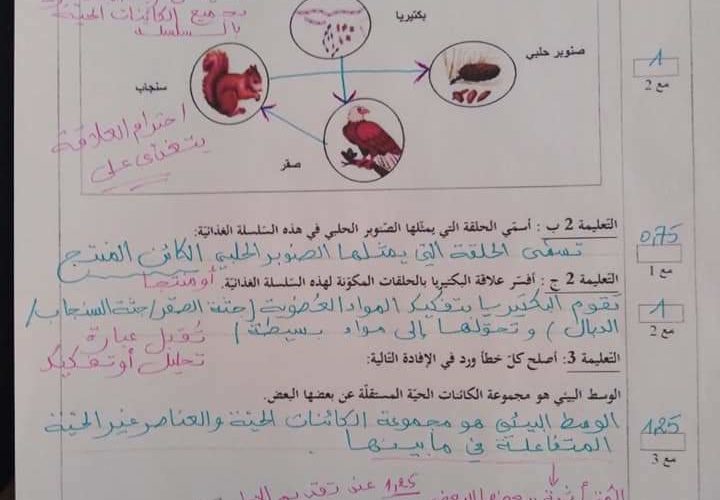 بجميع الكائنات الحيّة
بالسلسلة
بكتيريا
صنوبر حلبي
سنجاب
صقر
1
مع 2
احترام العلاقة
يتغذى على
التعليمة 2 ب : أسمّي الحلقة التي يمثّلها الصّنوبر الحلبي في هذه السّلسلة الغذائيّة:
0,75
تسمّى الحلقة التي يمثلها الصنوبر الحلبي الكائن المنتج
مع 1
أو منتجا
التعليمة 2 ج : أفسّر علاقة البكتيريا بالحلقات المكوّنة لهذه السّلسلة الغذائيّة.
تقوم البكتيريا بتفكيك المواد العضوية (جثة الصقر/جثة السنجاب/
الدبال) و تحوّلها إلى مواد بسيطة/
1
مع 2
تُقبل عبارة
تحليل أو تفكيك
التعليمة 3: أصلح كلّ خطأ ورد في الإفادة التّالية:
الوسط البيئي هو مجموعة الكائنات الحيّة المستقلّة عن بعضها البعض.
الوسط البيئي هو مجموعة الكائنات الحيّة والعناصر غير الحيّة
المتفاعلة في ما بينها
1,25
مع 3
1,25 عند تقديم